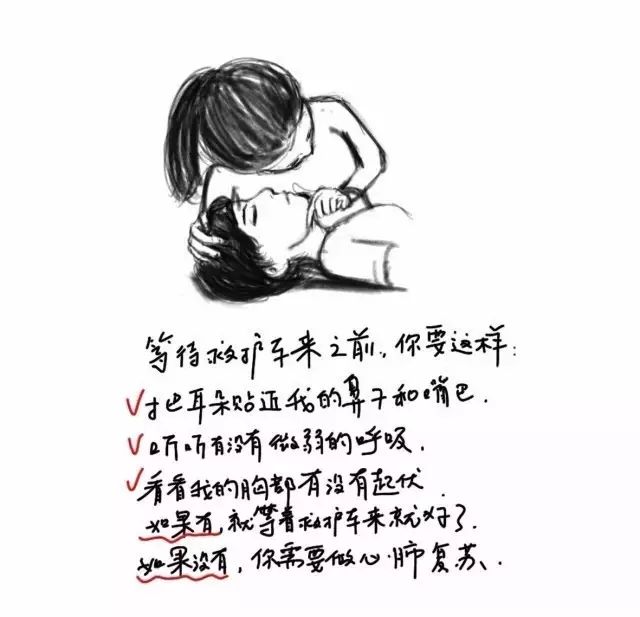 等待救护车来之前,你要这样:
把耳朵贴近我的鼻子和嘴巴.
听听有没有微弱的呼吸.
看看我的胸部有没有起伏.
如果有,就等着救护车来就好了.
如果没有,你需要做心肺复苏.